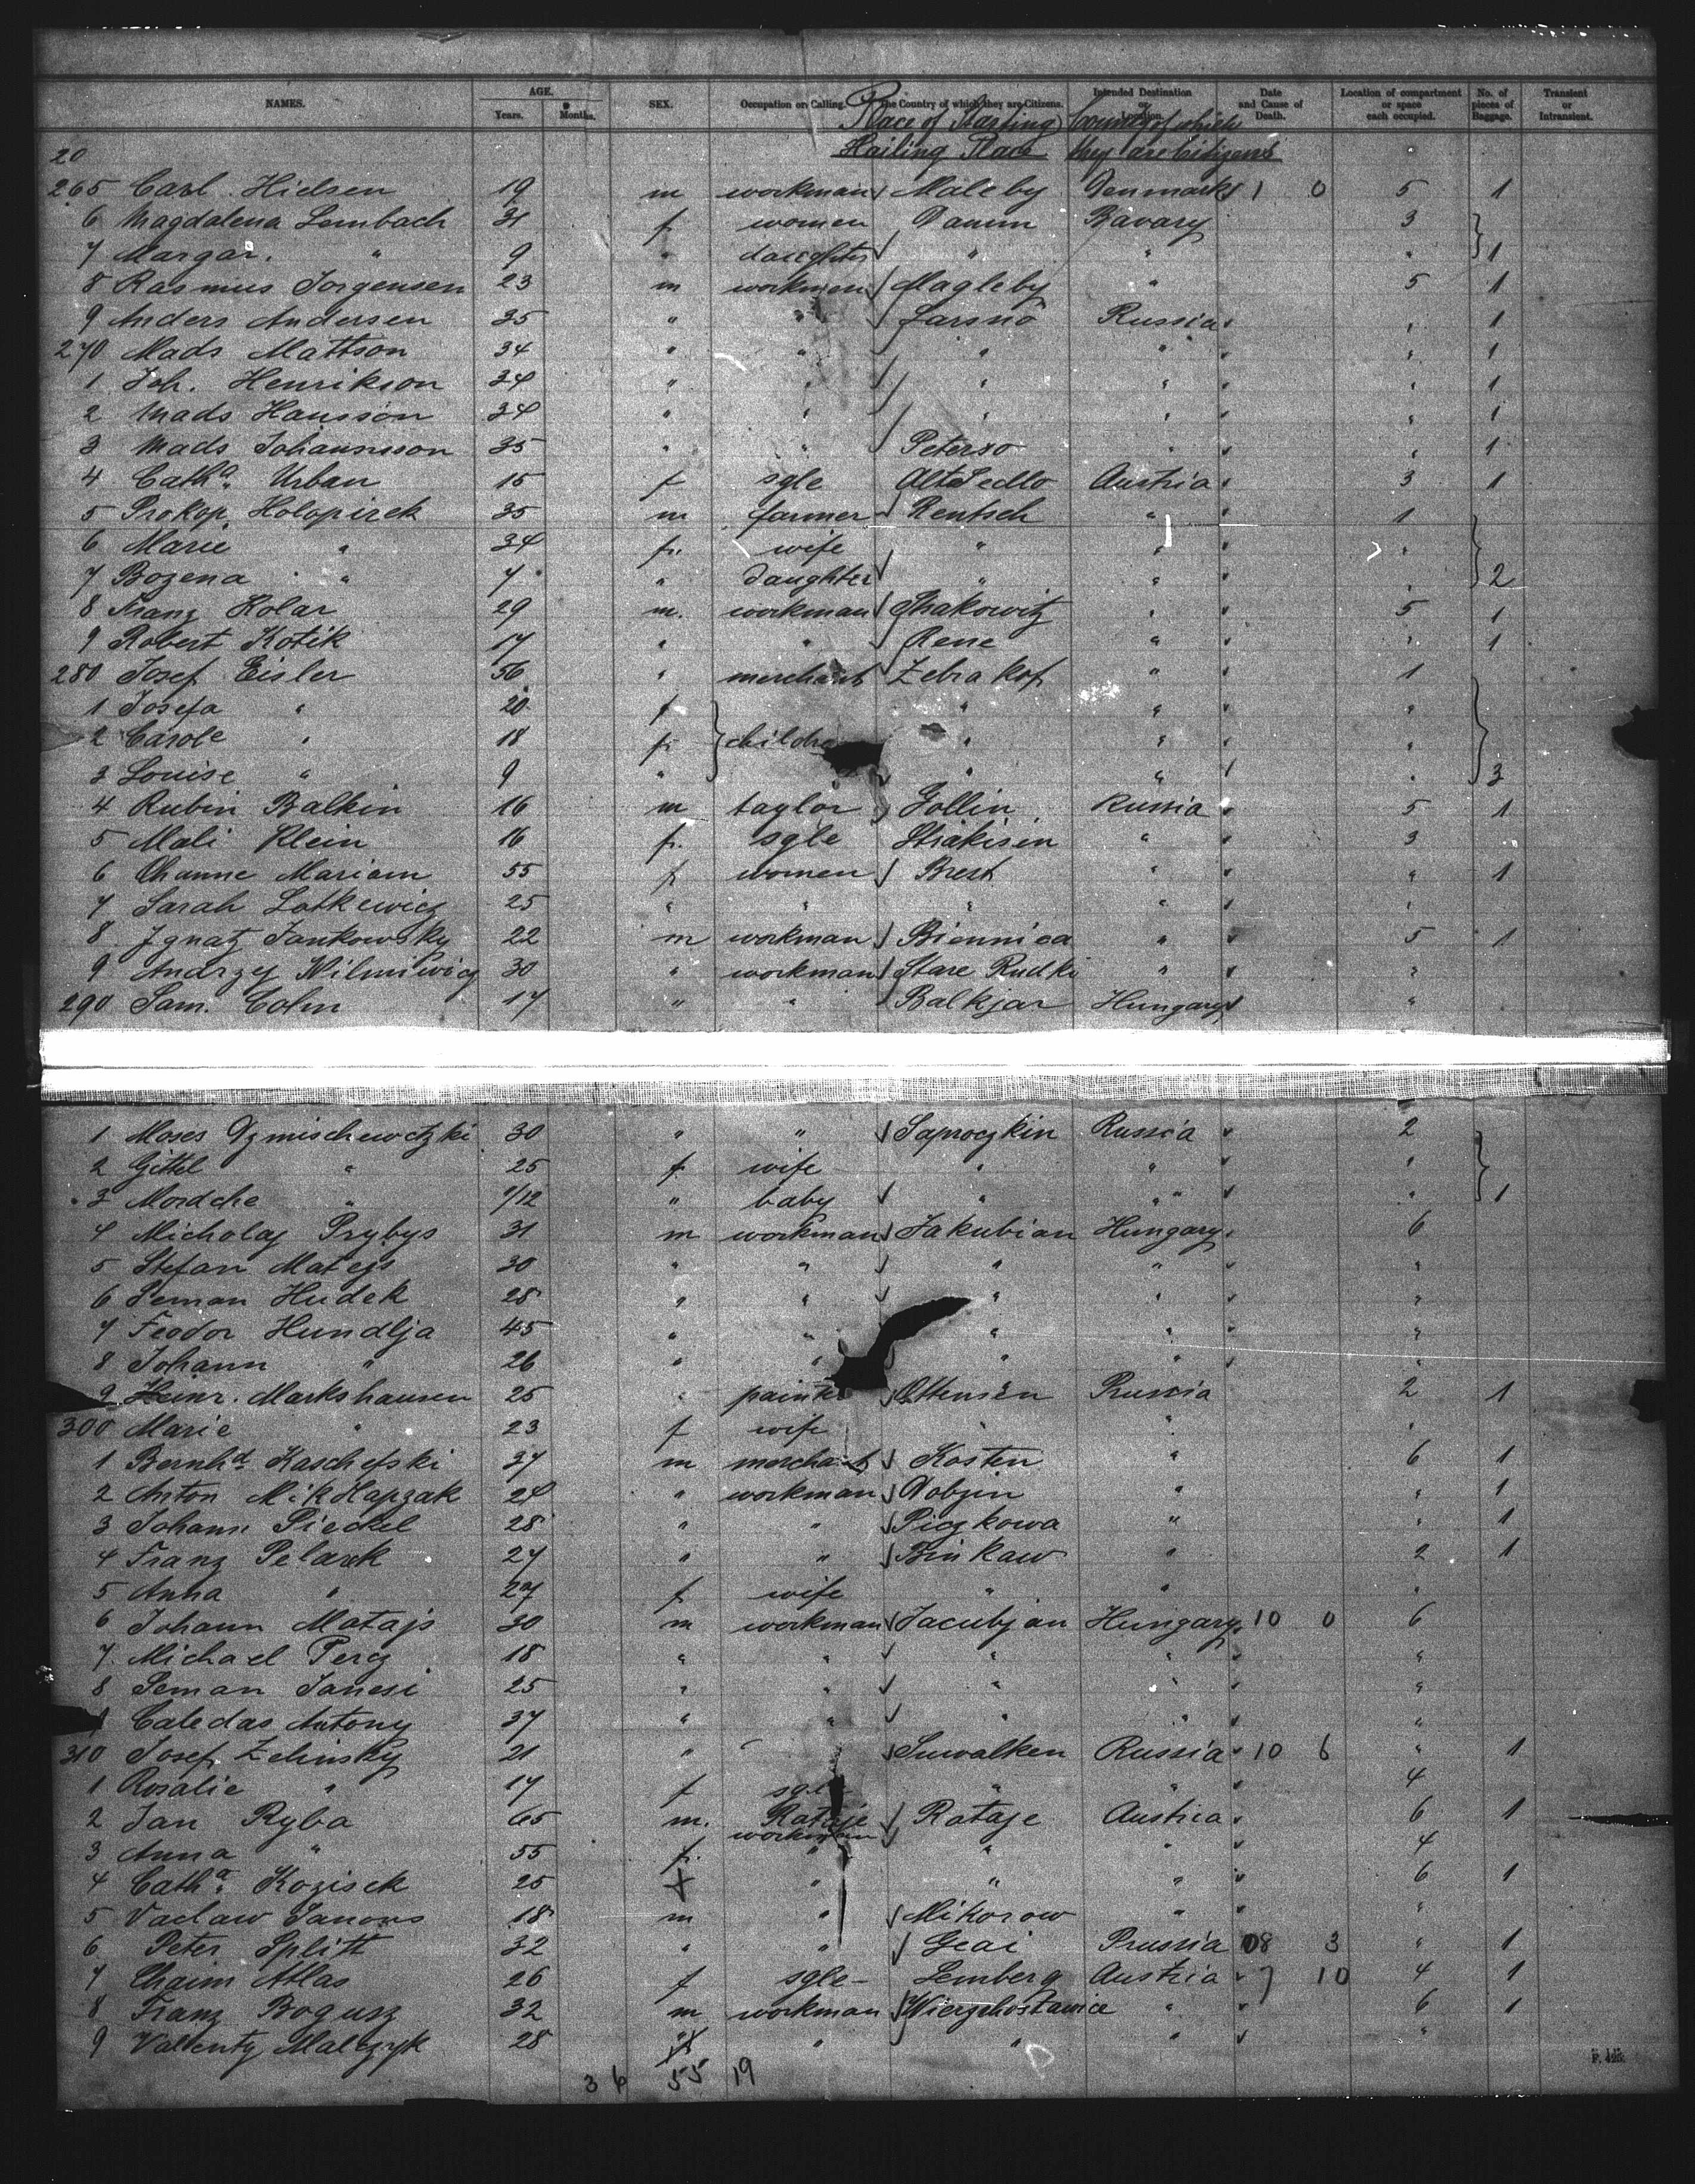 NAMES. AGE. Years. Months. SEX. Occupation or Calling. The Country of which they are Citizens. Intended Destination or Location. Date and Cause of Death. Location of compartment or space each occupied. No. of pieces of Baggage. Transient or Intransient.
Place of Starting Country of which
Hailing Place they are Citizens
20
265 Carl Hielsen 19 m workman Maleby Denmark 1 0 5 1
6 Magdalena Lembach 31 f women Damm Bavary 3
7 Margar. " 9 " daughter " " " 1
8 Rasmus Jorgensen 23 m workmen Magleby " 5 1
9 Anders Andersen 35 " " Larsmo Russia " 1
270 Mads Mattson 34 " " " " " 1
1 Joh. Henrikson 34 " " " " " 1
2 Mads Hansson 34 " " " " " 1
3 Mads Johannsson 35 " " Peterso " " 1
4 Catha. Urban 15 f sgle Alt Sedlo Austria 3 1
5 Prokop Holopirek 35 m farmer Rentsch " 1
6 Marie " 34 f. wife " " "
7 Bozena " 7 " daughter " " " 2
8 Franz Kolar 29 m. workman Shakowitz " 5 1
9 Robert Kotik 17 " " Rene " " 1
280 Josef Eisler 56 " merchant Zebrakof " 1
1 Josefa " 20 f " " "
2 Carole " 18 f. childre " " "
3 Louise " 9 " " " " 3
4 Rubin Balkin 16 m taylor Gollin Russia 5 1
5 Mali Klein 16 f. sgle Strakisin " 3
6 Channe Mariam 55 f women Brest " " 1
7 Sarah Lotkewicz 25 " " " " "
8 Ignatz Jankowsky 22 m workman Biennica " 5 1
9 Andrzej Wilniwicz 30 " workman Stare Rudki " "
290 Sam. Cohn 17 " " Balkjar Hungary "
1 Moses Dzmischewctzki 30 " " Saproczkin Russia 2
2 Gittel " 25 f. wife " " "
3 Mordche " /12 " baby " " " 1
4 Micholaj Prybys 31 m workman Jakubian Hungary 6
5 Stefan Matejs 30 " " " " "
6 Seman Hudek 28 " " " " "
7 Feodor Hundlja 45 " " " " "
8 Johann " 26 " " " " "
9 Heinr. Markshausen 25 " painte Ottensen Prussia 2 1
300 Marie " 23 f wife " " "
1 Bernhdt. Kaschefski 37 m merchant Kosten " 6 1
2 Anton Mikklapzak 24 " workman Dobzin " " 1
3 Johann Pieckel 28 " " Piczkowa " " 1
4 Franz Pelarek 27 " " Binkaw " 2 1
5 Anna " 27 f wife " " "
6 Johann Matajs 30 m workman Jacubjan Hungary 10 0 6
7. Michael Percz 18 " " " " "
8 Seman Janesi 25 " " " " "
Caledas Antony 37 " " " " "
310 Josef Zelinsky 21 " " Suwalken Russia 10 6 " 1
1 Rosalie " 17 f sgle " " 4
2 Jan Ryba 65 m. Rataje Rataje Austria 6 1
workman
3 Anna " 55 f. " " " 4
4 Catha. Kozisek 25 f " " " 6 1
5 Vaclaw Janous 18 m " Mikorow " "
6 Peter Splitt 32 " " Geai Prussia 08 3 " 1
7 Chaim Atlas 26 f sgle Lemberg Austria 7 10 4 1
8 Franz Bogusz 32 m workman Wierzchostawice " 6 1
9 Vallenty Malczyk 28 " " " " "
36 55 19